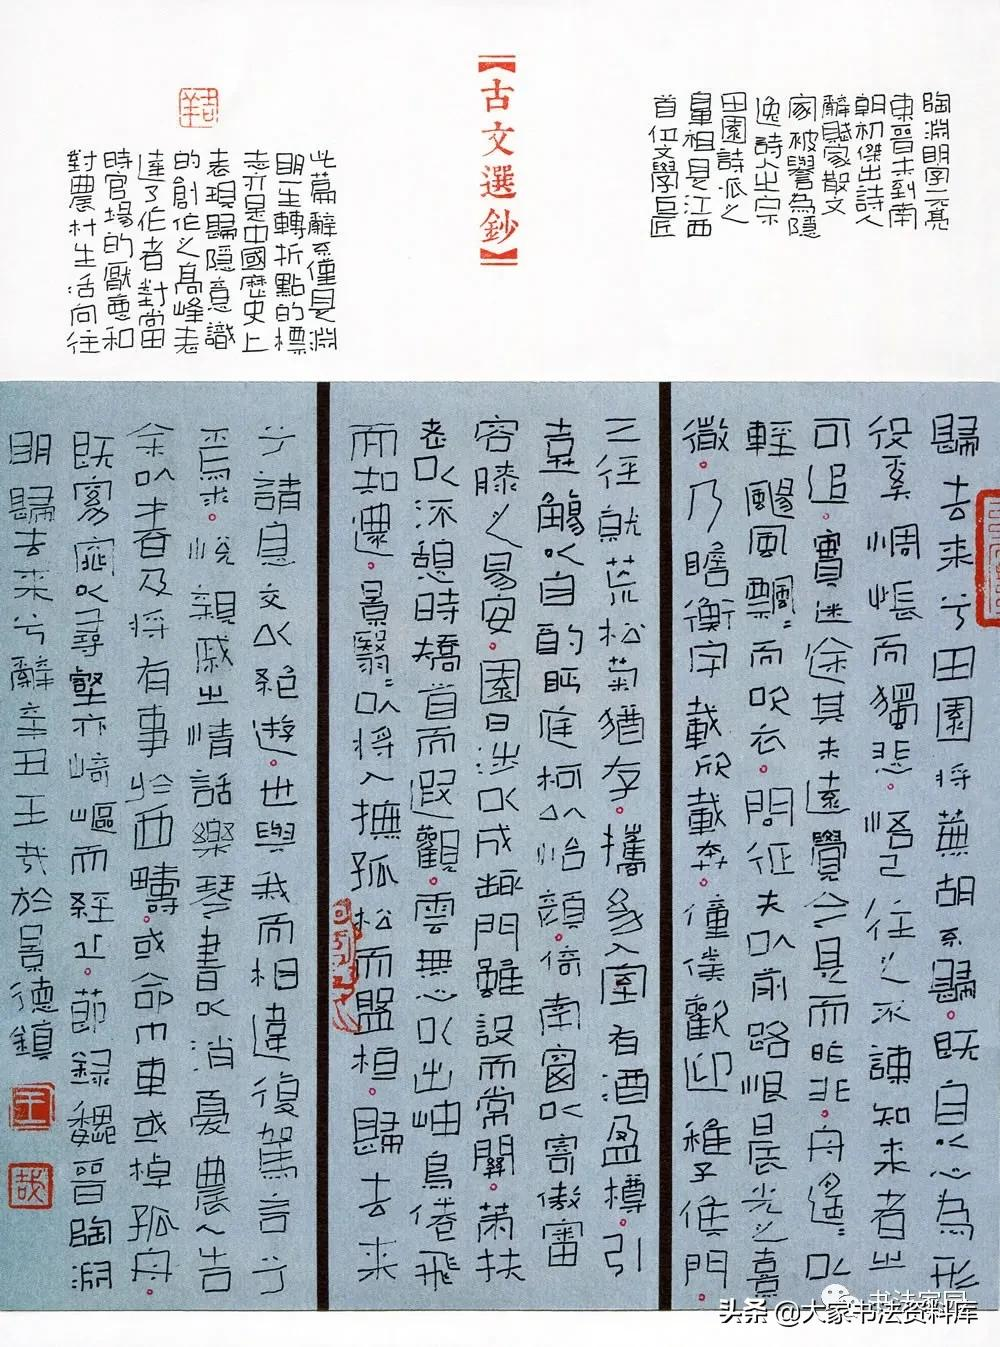 陶淵明字元亮
東晉末到南
朝初傑出詩人
辭賦家散文
家被譽為隱
逸詩人之宗
田園詩派之
鼻祖是江西
首位文學巨匠
【古文選鈔】
此篇辭不僅是淵
明一生轉折點的標
志亦是中國歷史上
表現歸隱意識
的創作之高峰表
達了作者對當
時官場的厭惡和
對農村生活向往
歸去來兮田園將蕪胡不歸。既自以心為形
役奚惆悵而獨悲。悟已往之不諫知來者之
可追。實迷途其未遠覺今是而昨非。舟遙遙以
輕颺風飄飄而吹衣。問征夫以前路恨晨光之熹
微。乃瞻衡宇載欣載奔。僮僕歡迎稚子候門。
三徑就荒松菊猶存。攜幼入室有酒盈樽。引
壺觴以自酌眄庭柯以怡顏。倚南窗以寄傲審
容膝之易安。園日涉以成趣門雖設而常關。策扶
老以流憩時矯首而遐觀。雲無心以出岫鳥倦飛
而知還。景翳翳以將入撫孤松而盤桓。歸去來
兮請息交以絕遊。世與我而相違復駕言兮
焉求。悅親戚之情話樂琴書以消憂農人告
余以春及將有事於西疇。或命巾車或棹孤舟。
既窈窕以尋壑亦崎嶇而經丘。節錄魏晉陶淵
明歸去來兮辭辛丑王哉於景德鎮
王
哉
书法家园
头条 @大家书法资料库